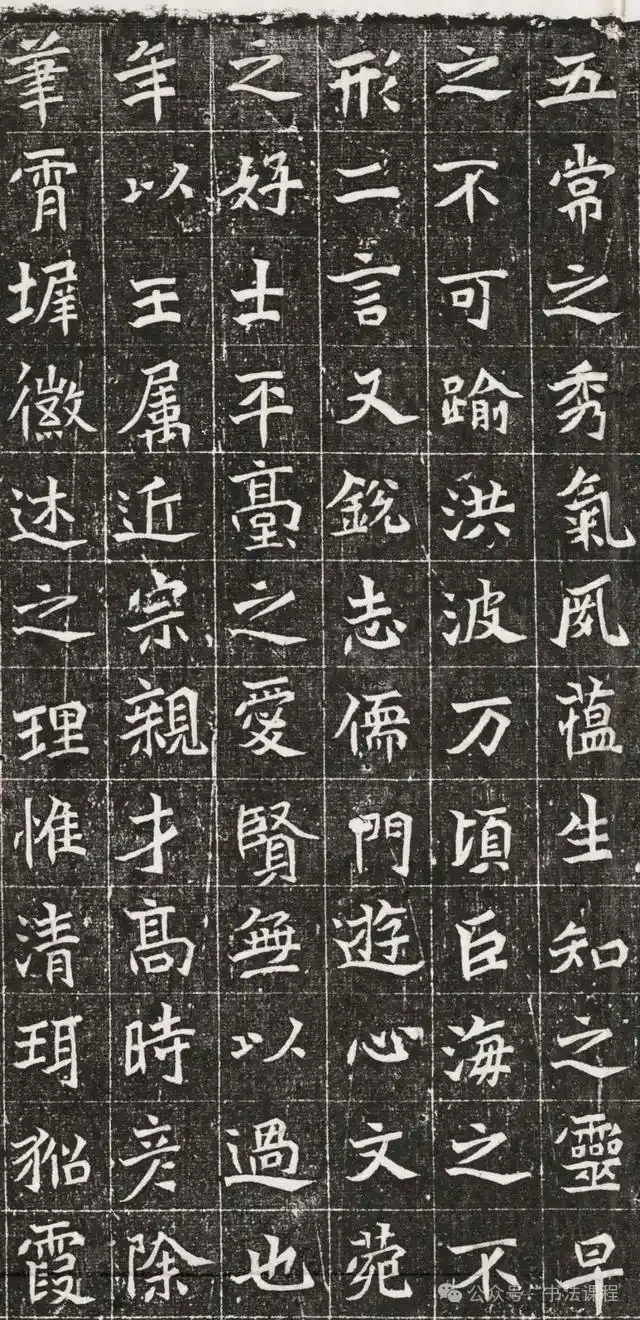 五常之秀氣夙蘊生知之靈早
之不可踰洪波万頃巨海之不
形二言又銳志儒門遊心文菀
之好士平臺之愛賢無以過也
年以王属近宗親才高時彦除
筆霄墀徽述之理惟清珥貂霞
公众号·书法课程